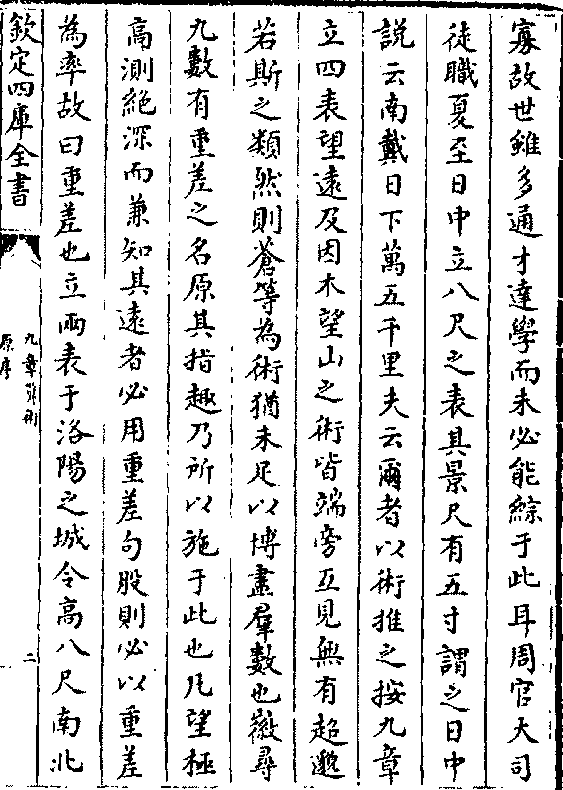 寡故世雖多通才達學而未必能綜于此耳周官大司
徒職夏至日中立八尺之表其景尺有五寸謂之日中
說云南戴日下萬五千里夫云爾者以術推之按九章
立四表望遠及因木望山之術皆端旁互見無有超邈
若斯之類然則蒼等為術猶未足以博盡羣數也徽尋
九數有重差之名原其指趣乃所以施于此也凡望極
高測絶深而兼知其遠者必用重差句股則必以重差
為率故曰重差也立兩表于洛陽之城令高八尺南北
欽定四庫全書
九章算術
原序
二